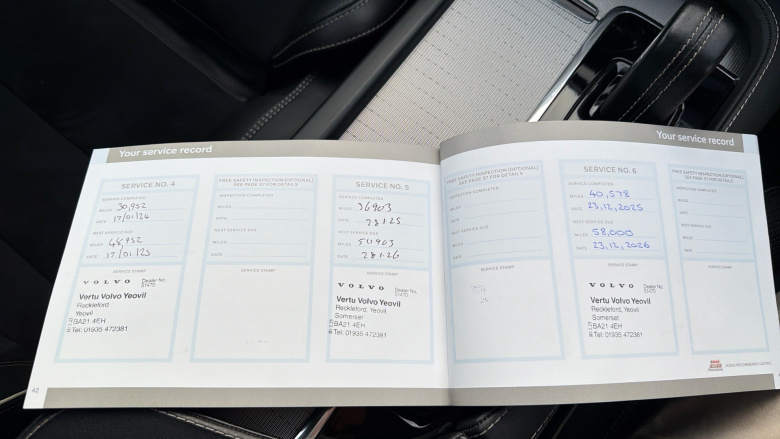 Your service record
SERVICE NO. 4
SERVICE COMPLETED
MILES 30,952
DATE 17/01/24
NEXT SERVICE DUE
MILES 48,952
DATE 17/01/25
SERVICE STAMP
VOLVO Dealer No.
Vertu Volvo Yeovil
Reckleford,
Yeovil
BA21 4EH
Tel: 01935 472381
42
FREE SAFETY INSPECTION (OPTIONAL)
SEE PAGE 37 FOR DETAILS
INSPECTION COMPLETED
MILES
DATE
NEXT SERVICE DUE
MILES
DATE
SERVICE STAMP
SERVICE NO. 5
SERVICE COMPLETED
MILES 36903
DATE 28.1.25
NEXT SERVICE DUE
MILES 54903
DATE 28.1.26
SERVICE STAMP
VOLVO Dealer No.
Vertu Volvo Yeovil
Reckleford, Yeovil
Somerset
BA21 4EH
Tel: 01935 472381
Your service record
FREE SAFETY INSPECTION (OPTIONAL)
SEE PAGE 37 FOR DETAILS
INSPECTION COMPLETED
MILES
DATE
NEXT SERVICE DUE
MILES
DATE
SERVICE STAMP
SERVICE NO. 6
SERVICE COMPLETED
MILES 40,578
DATE 23,12,2025
NEXT SERVICE DUE
MILES 58,000
DATE 23,12,2026
SERVICE STAMP
VOLVO Dealer No.
Vertu Volvo Yeovil
Reckleford, Yeovil
Somerset
BA21 4EH
Tel: 01935 472381
FREE SAFETY INSPECTION (OPTIONAL)
SEE PAGE 37 FOR DETAILS
INSPECTION COMPLETED
MILES
DATE
NEXT SERVICE DUE
MILES
DATE
SERVICE STAMP
VOLVO RECOMMENDS CASTROL